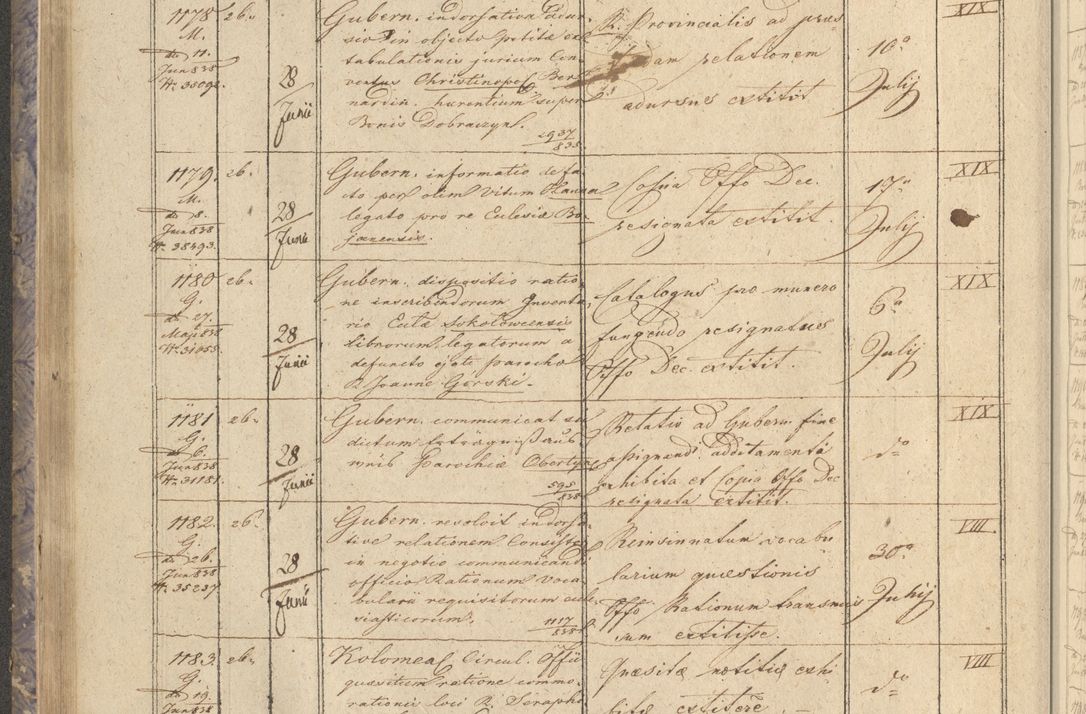 1178
M.
d. 11.
Jun 838
N. 38092.
26.
28
Junii
Gubern. indorsativa
in objecto petitæ ex
tabulationis jurium Con
ventus Christinop. Ber
nardin. hærentium super
Bonis Dobraczyn.
2937
835
R. Provincialis ad præs
relationem
adversus extitit
10a
Julij
XIX
1179.
M.
d. 8.
Jun 838
N. 38493.
26.
28
Junii
Gubern. informatio de fa
cto per olim Vitum
legato pro re Eclesiæ Bo
janensis.
Copia Offo Dec.
resignata extitit.
17a
Julij
XIX
1180
G.
d. 27.
Maji 838
N. 31055.
26.
28
Junii
Gubern. dispositio ratio
ne inscribendorum Inventa
rio Eccl. Sokołowcensis
librorum legatorum a
defuncto ejati parocho
R. Joanne Górski.
Catalogus pro munere
fungendo resignatus
Offo Dec. extitit.
6a
Julij
XIX
1181
G.
d. 6.
Jun 838
N. 31181.
26.
28
Junii
Gubern. communicat
dictum Erträgnißaus
weis Parochiæ Obertyn
595
838
Relatio ad Gubern. fine
assignandi additamenti
exhibita et Copia Offo Dec
resignata extitit.
do
XIX
1182.
G.
d. 26.
Jun 838
N. 35237
26.
28
Junii
Gubern. resolvit indorsa
tive relationem Consisto
in negotio communicandi
officio Rationum Voca
bularii requisitorum eccle
siasticorum.
1117
838
Reinsinnatum vocabu
larium quæstionis
Offo Rationum transmis
sum extitisse.
30a
Julij
VIII
1183.
G.
d. 19.
Jun 838
26.
Kolomeas Circul. Offii
quæsitum ratione commo
rationis loci R. Serapho
Quæsitæ notitiæ exhi
bitæ extitere.
do
VIII